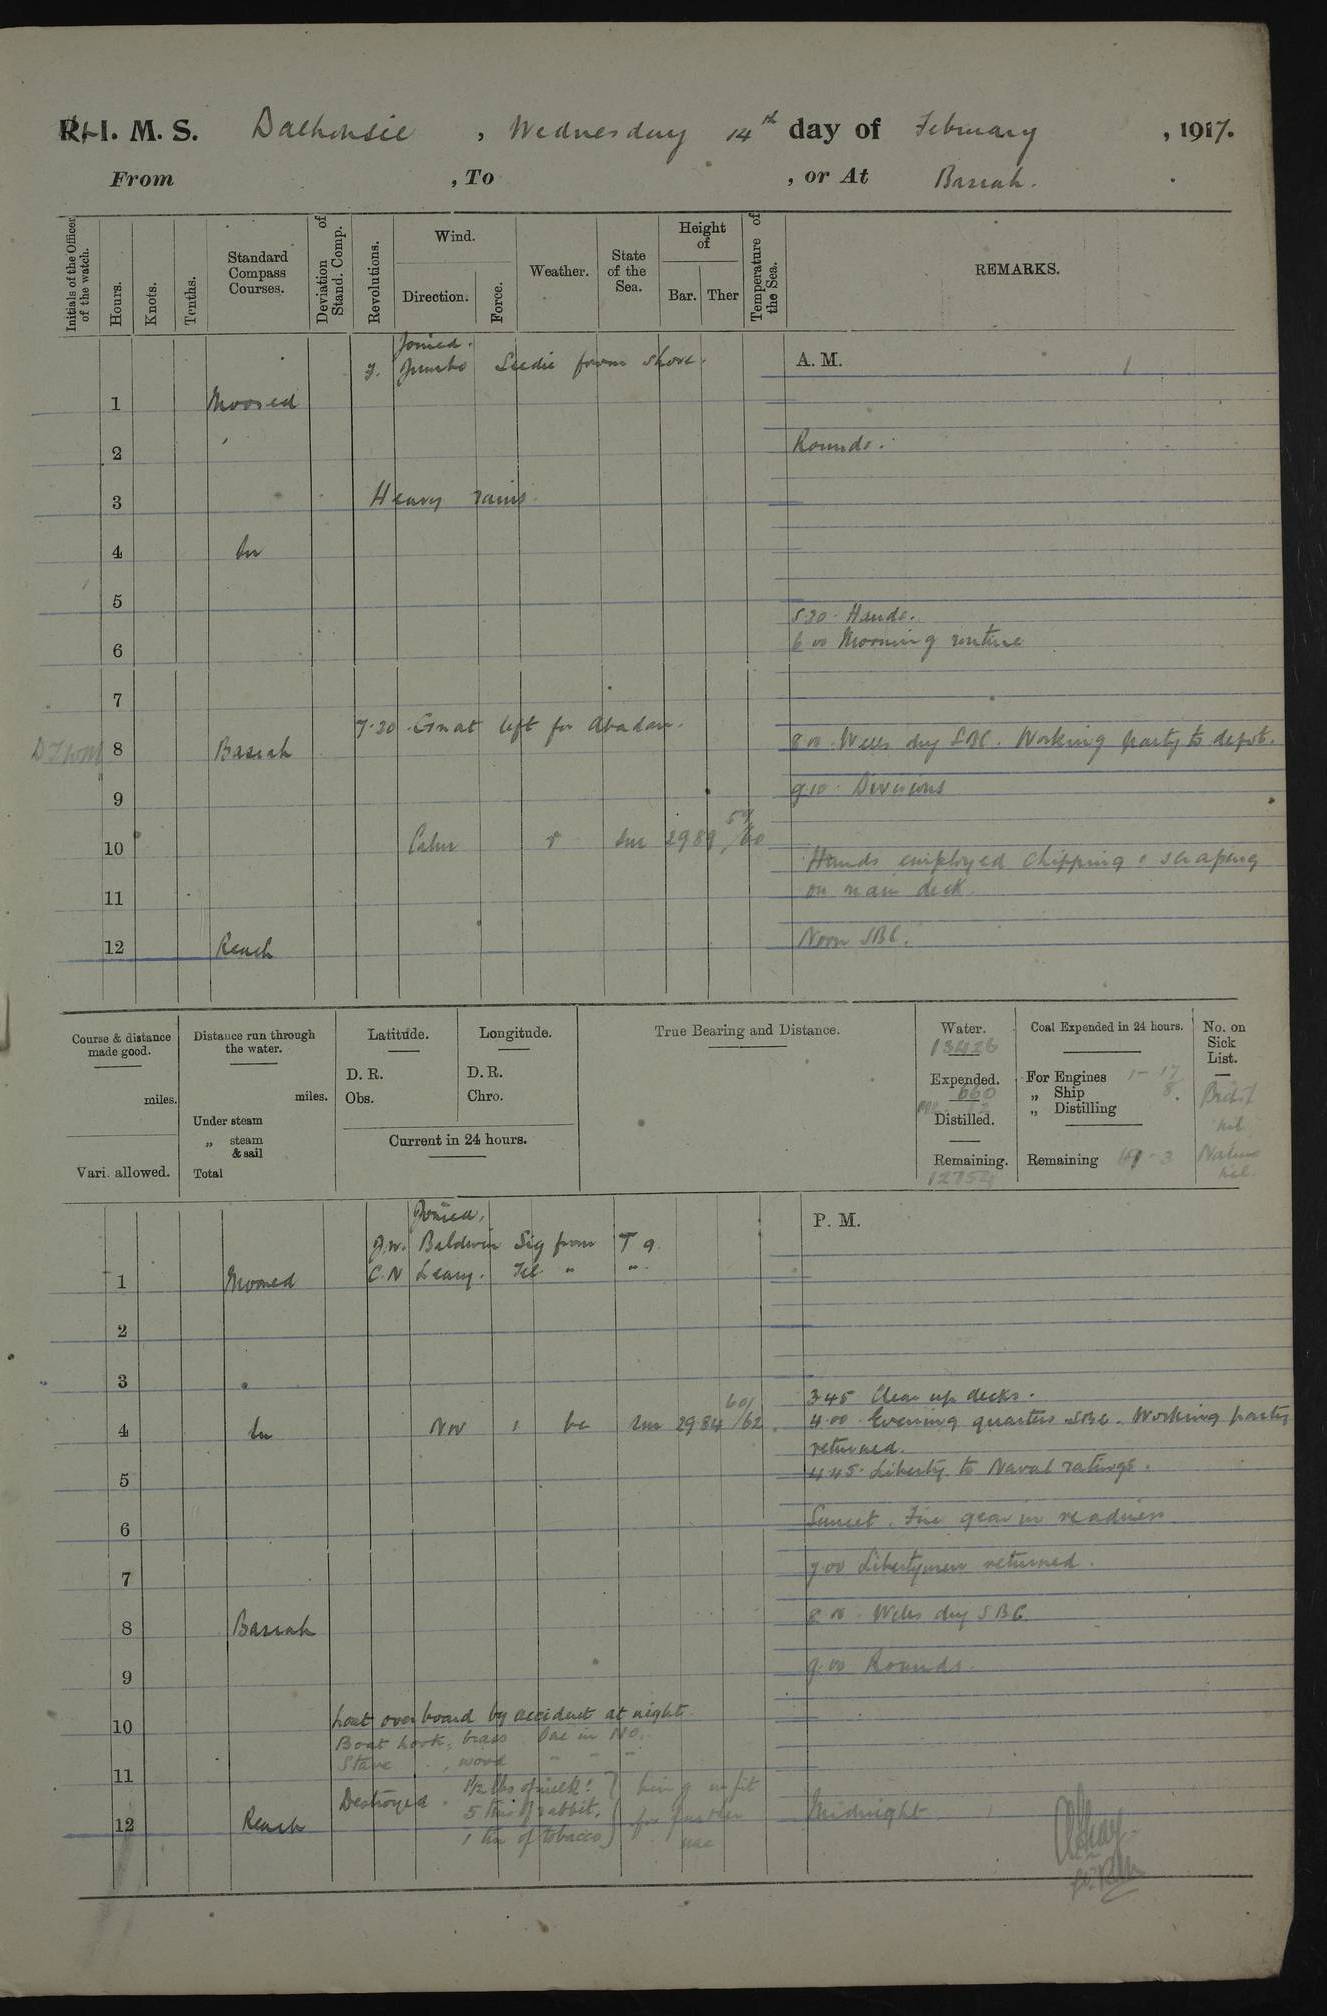 R. I. M. S. Dalhousie , Wednesday 14th day of February , 1917.
From , To , or At Basrah.
Initials of the Officer of the watch. Hours. Knots. Tenths. Standard Compass Courses. Deviation of Stand. Comp. Revolutions. Wind. Direction. Force. Weather. State of the Sea. Height of Bar. Ther Temperature of the Sea. REMARKS.
Joined.
J. Jumbo Seedie from shore. A. M.
1 Moored
2 Rounds.
3 Heavy rains
4 In
5
5.30 Hands.
6 6.00 Morning routine
7
7.20 Gnat left for Abadan.
8 Basrah 8.00 Wells dry SBC. Working party to depot.
9 9.10 Divisions
10 Calm r Sm 29.89 59/60
Hands employed chipping & scraping
11 on main deck.
12 Reach Noon SBC.
Course & distance made good. miles. Vari. allowed.
Distance run through the water. miles. Under steam „ steam & sail Total
Latitude. D. R. Obs. Longitude. D. R. Chro.
Current in 24 hours.
True Bearing and Distance.
Water. 13426
Expended. 660
Distilled.
Remaining. 12754
Coal Expended in 24 hours.
For Engines 1-17
„ Ship 8.
„ Distilling
Remaining 41-3
No. on Sick List.
nil
Native
nil.
P. M.
Joined.
J.W. Baldwin Sig from T 9
C.N Leary. Tel " "
1 Moored
2
3
3.45 Clear up decks.
4 In NW 1 bc Sm 29.84 60/62 4.00 Evening quarters SBC. Working party
returned.
5 4.45 Liberty to Naval ratings.
6 Sunset. Fire gear in readiness
7 7.00 Libertymen returned.
8 Basrah 8.00 Wells dry SBC.
9 9.00 Rounds.
Lost overboard by accident at night
10 Boat hook, brass One in NO.
Stave , wood " " "
11
Destroyed 1/2 lbs of milk } being unfit
5 tins of rabbit, for further
1 tin of tobacco } use
12 Reach Midnight